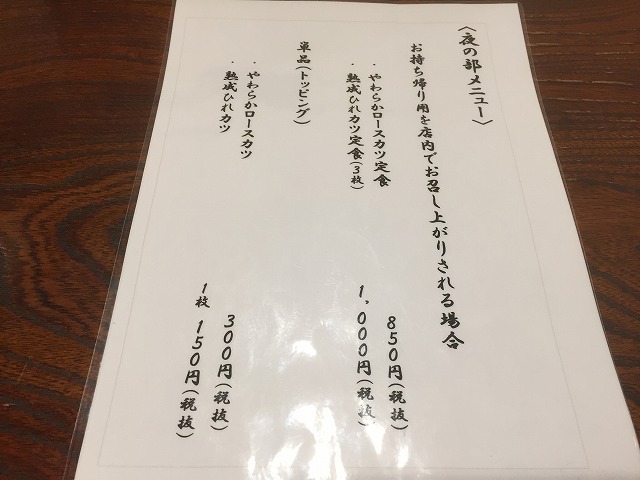 〈夜の部メニュー〉
お持ち帰り用を店内でお召し上がりされる場合
・やわらかロースカツ定食 850円(税抜)
・熟成ひれカツ定食(3枚) 1,000円(税抜)
単品(トッピング)
・やわらかロースカツ 300円(税抜)
・熟成ひれカツ 1枚 150円(税抜)